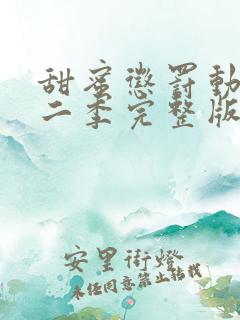 甜蜜懲罰動
二季完整版
安里街燈
未任同意禁止转载